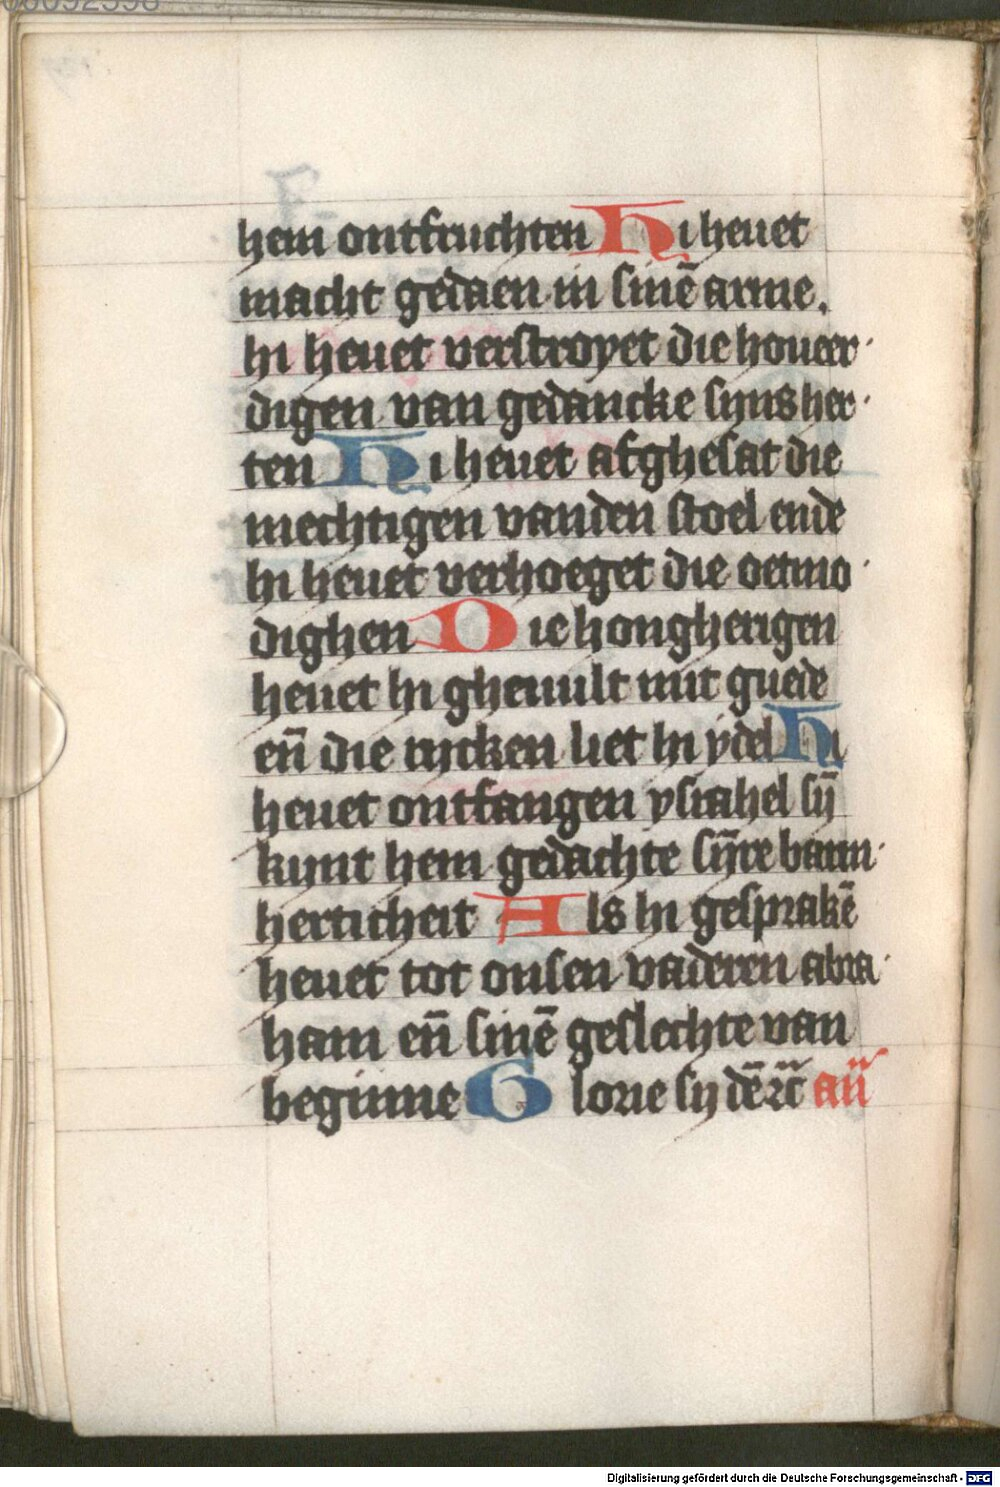 hem ontfruchten Hi heuet
macht gedaen in sinē arme.
hi heuet verstroyet die houeer
digen van gedancke syns her
ten Hi heuet afghesat die
mechtigen vanden stoel ende
hi heuet verhoeget die oetmo
dighen Die hongherigen
heuet hi gheuult mit guede
eñ die rycken liet hi ydel Hi
heuet ontfangen ysrahel sȳ
kynt hem gedachte sȳre barm
herticheit Als hi gesprakē
heuet tot onsen vaderen abra
ham eñ sinē geslechte van
beginne Glorie sy
Digitalisierung gefördert durch die Deutsche Forschungsgemeinschaft - DFG